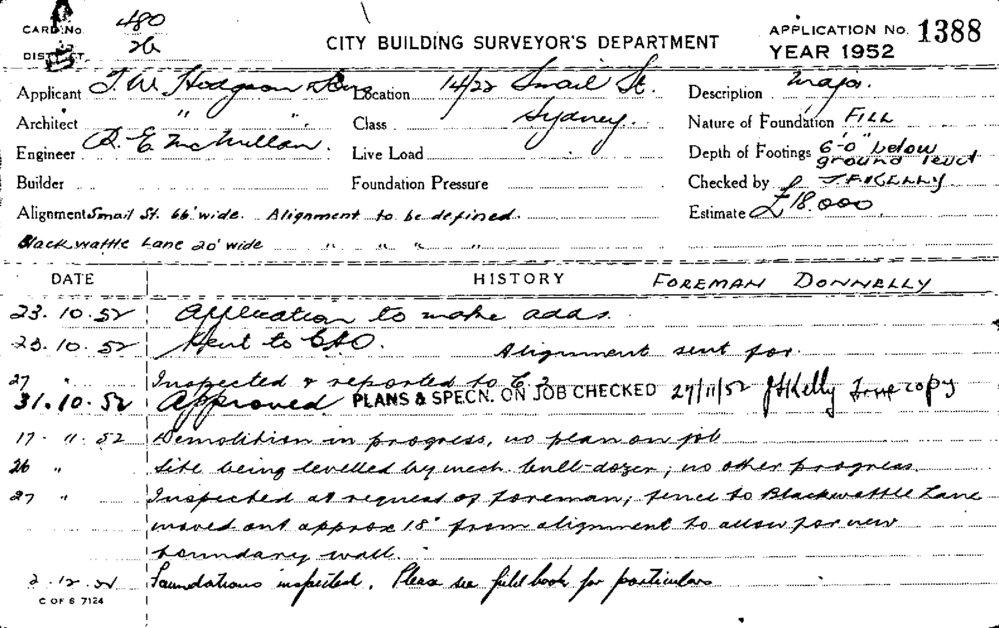 CARD No. 480
DISTRICT 26
CITY BUILDING SURVEYOR'S DEPARTMENT
APPLICATION No. 1388
YEAR 1952
Applicant T. W. Hodgson & Sons Location 14/22 Smail St. Description Major.
Architect " " Sydney. Nature of Foundation FILL
Class
Engineer R. E. McMillan. Live Load Depth of Footings 6'-0" below ground level
Builder Foundation Pressure Checked by J F KELLY
Alignment Smail St. 66' wide. Alignment to be defined. Estimate £18,000
Blackwattle Lane 20' wide " " " "
DATE HISTORY FOREMAN DONNELLY
23.10.52 Application to make adds.
23.10.52 Sent to Alignment sent for
27 " Inspected & reported to
31.10.52 Approved PLANS & SPECN. ON JOB CHECKED 27/11/52 JFKelly copy
17.11.52 Demolition in progress, no plan on job
26 " Site being levelled by mech. bull-dozer; no other progress.
27 " Inspected at request of foreman; fence to Blackwattle Lane
moved out approx 18" from alignment to allow for new
boundary wall.
2.12.52 Foundations inspected. Please see field book for particulars
C OF S 7124